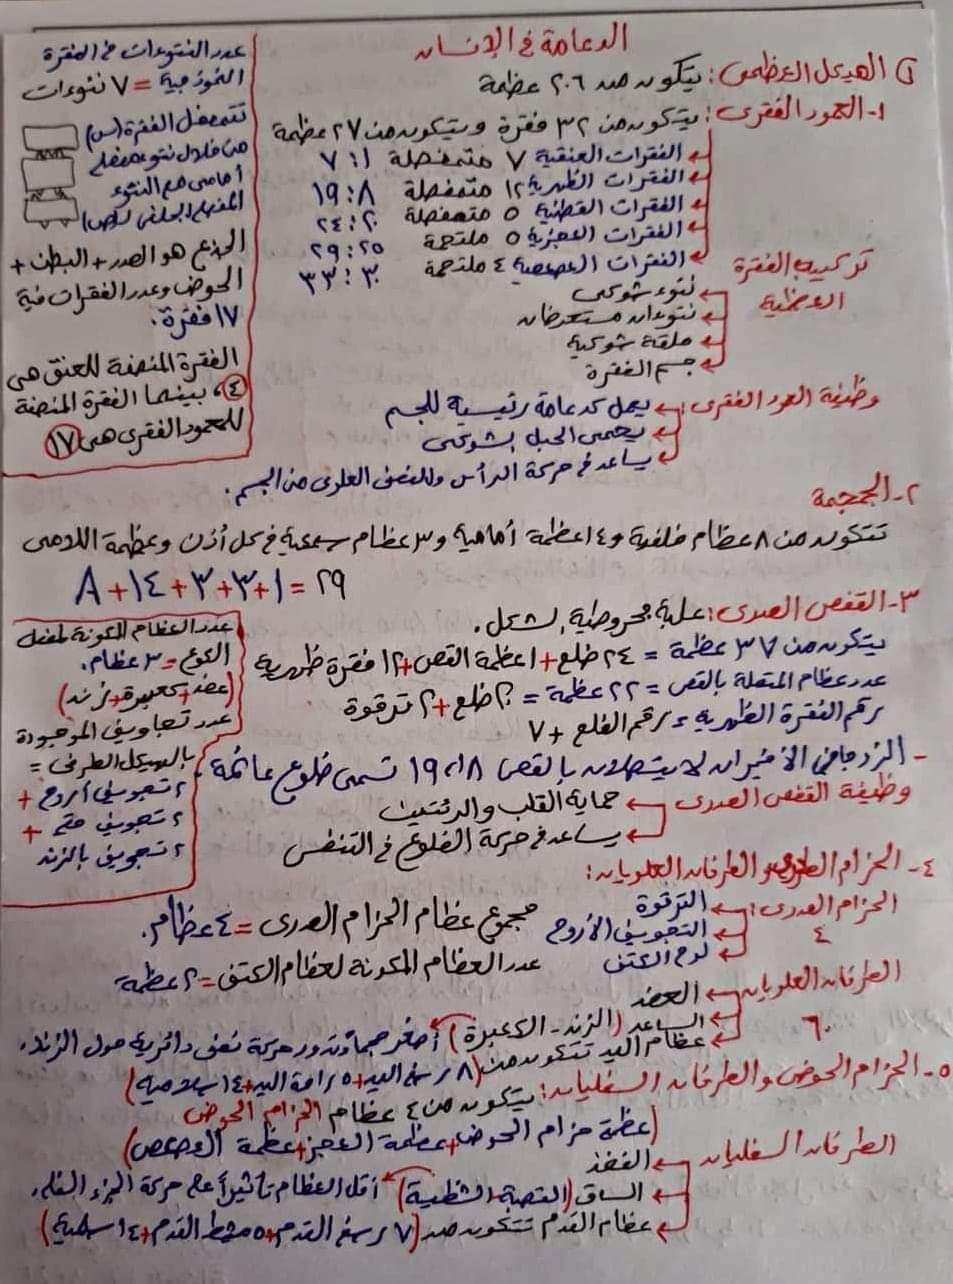 الدعامة في الإنسان
① الهيكل العظمى: يتكون من ٢٠٦ عظمة
١- العمود الفقرى: يتكون من ٣٢ فقرة ويتكون من ٢٧ عظمة
الفقرات العنقية ٧ متمفصلة ١ : ٧
الفقرات الظهرية ١٢ متمفصلة ٨ : ١٩
الفقرات القطنية ٥ متمفصلة ٢٠ : ٢٤
الفقرات العجزية ٥ ملتحمة ٢٥ : ٢٩
الفقرات العصعصية ٤ ملتحمة ٣٠ : ٣٣
تركيب الفقرة العظمية
نتوء شوكى
نتوءان مستعرضان
حلقة شوكية
جسم الفقرة
وظيفة العمود الفقرى:
يعمل كدعامة رئيسية للجسم
يحمى الحبل الشوكى
يساعد فى حركة الرأس والنصف العلوى من الجسم.
عدد النتوءات فى الفقرة
النموذجية = ٧ نتوءات
تتمفصل الفقرة (س)
من خلال نتوء مفصلى
أمامى مع النتوء
المفصلى الخلفى لـ(ص)
الجذع هو الصدر + البطن +
الحوض وعدد الفقرات فية
١٧ فقرة.
الفقرة المنصفة للعنق هى
٤، بينما الفقرة المنصفة
للعمود الفقرى هى ١٧
٢- الجمجمة
تتكون من ٨ عظام خلفية و١٤ عظمة أمامية و٣ عظام سمعية فى كل أذن وعظمة اللامى
٨ + ١٤ + ٣ + ٣ + ١ = ٢٩
٣- القفص الصدرى: علبة مخروطية الشكل.
يتكون من ٣٧ عظمة = ٢٤ ضلع + ١ عظمة القص + ١٢ فقرة ظهرية
عدد عظام المتصلة بالقص = ٢٢ عظمة = ٢٠ ضلع + ٢ ترقوة
رقم الفقرة الظهرية = رقم الضلع + ٧
- الزوجان الأخيران لا يتصلان بالقص ١٨، ١٩ تسمى ضلوع عائمة
وظيفة القفص الصدرى
حماية القلب والرئتين
يساعد فى حركة الضلوع فى التنفس
عدد العظام المكونة لمفصل
الكوع = ٣ عظام.
(عضد + كعبرة + زند)
عدد تجاويف الموجودة
بالهيكل الطرفى =
٢ تجويف أروح +
٢ تجويف حقى +
٢ تجويف بالزند
٤- الحزام الصدرى والطرفان العلويان:
الحزام الصدرى: ٤
الترقوة
التجويف الأروح
لوح الكتف
مجموع عظام الحزام الصدرى = ٤ عظام.
عدد العظام المكونة لعظام الكتف = ٢ عظمة
الطرفان العلويان ٦٠
العضد
الساعد (الزند - الكعبرة) أصغر حجماً وتدور حركة نصف دائرية حول الزند.
عظام اليد تتكون من (٨ رسغ اليد + ٥ راحة اليد + ١٤ سلامية)
٥- الحزام الحوض والطرفان السفليان: يتكون من ٤ عظام الحزام الحوض
(عظمة حزام الحوض + عظمة العجز + عظمة العصعص)
الطرفان السفليان
الفخذ
الساق (القصبة - الشظية) أقل العظام تأثيراً على حركة الجزء السفلى.
عظام القدم تتكون من (٧ رسغ القدم + ٥ مشط القدم + ١٤ سلامية)